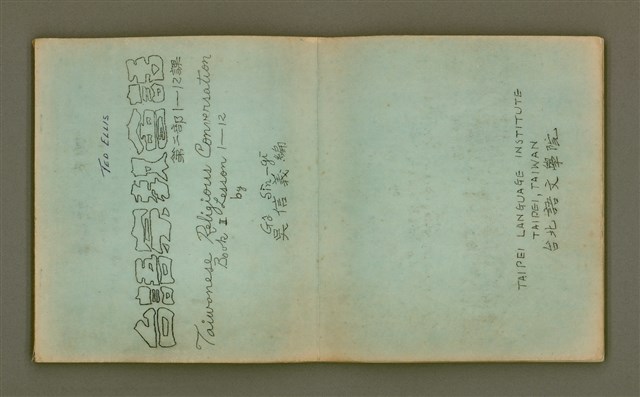 TED ELLIS
台語宗教會話
第二部 1—12課
Taiwanese Religious Conversation
Book I Lesson 1—12
by
Gô Sìn-gī
吳信義編
TAIPEI LANGUAGE INSTITUTE
TAIPEI, TAIWAN
台北語文學院